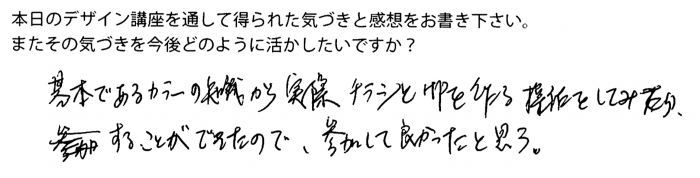 本日のデザイン講座を通して得られた気づきと感想をお書き下さい。
またその気づきを今後どのように活かしたいですか？
基本であるカラーの知識から実際チラシとHPを作る
することができたので、参加して良かったと思う。